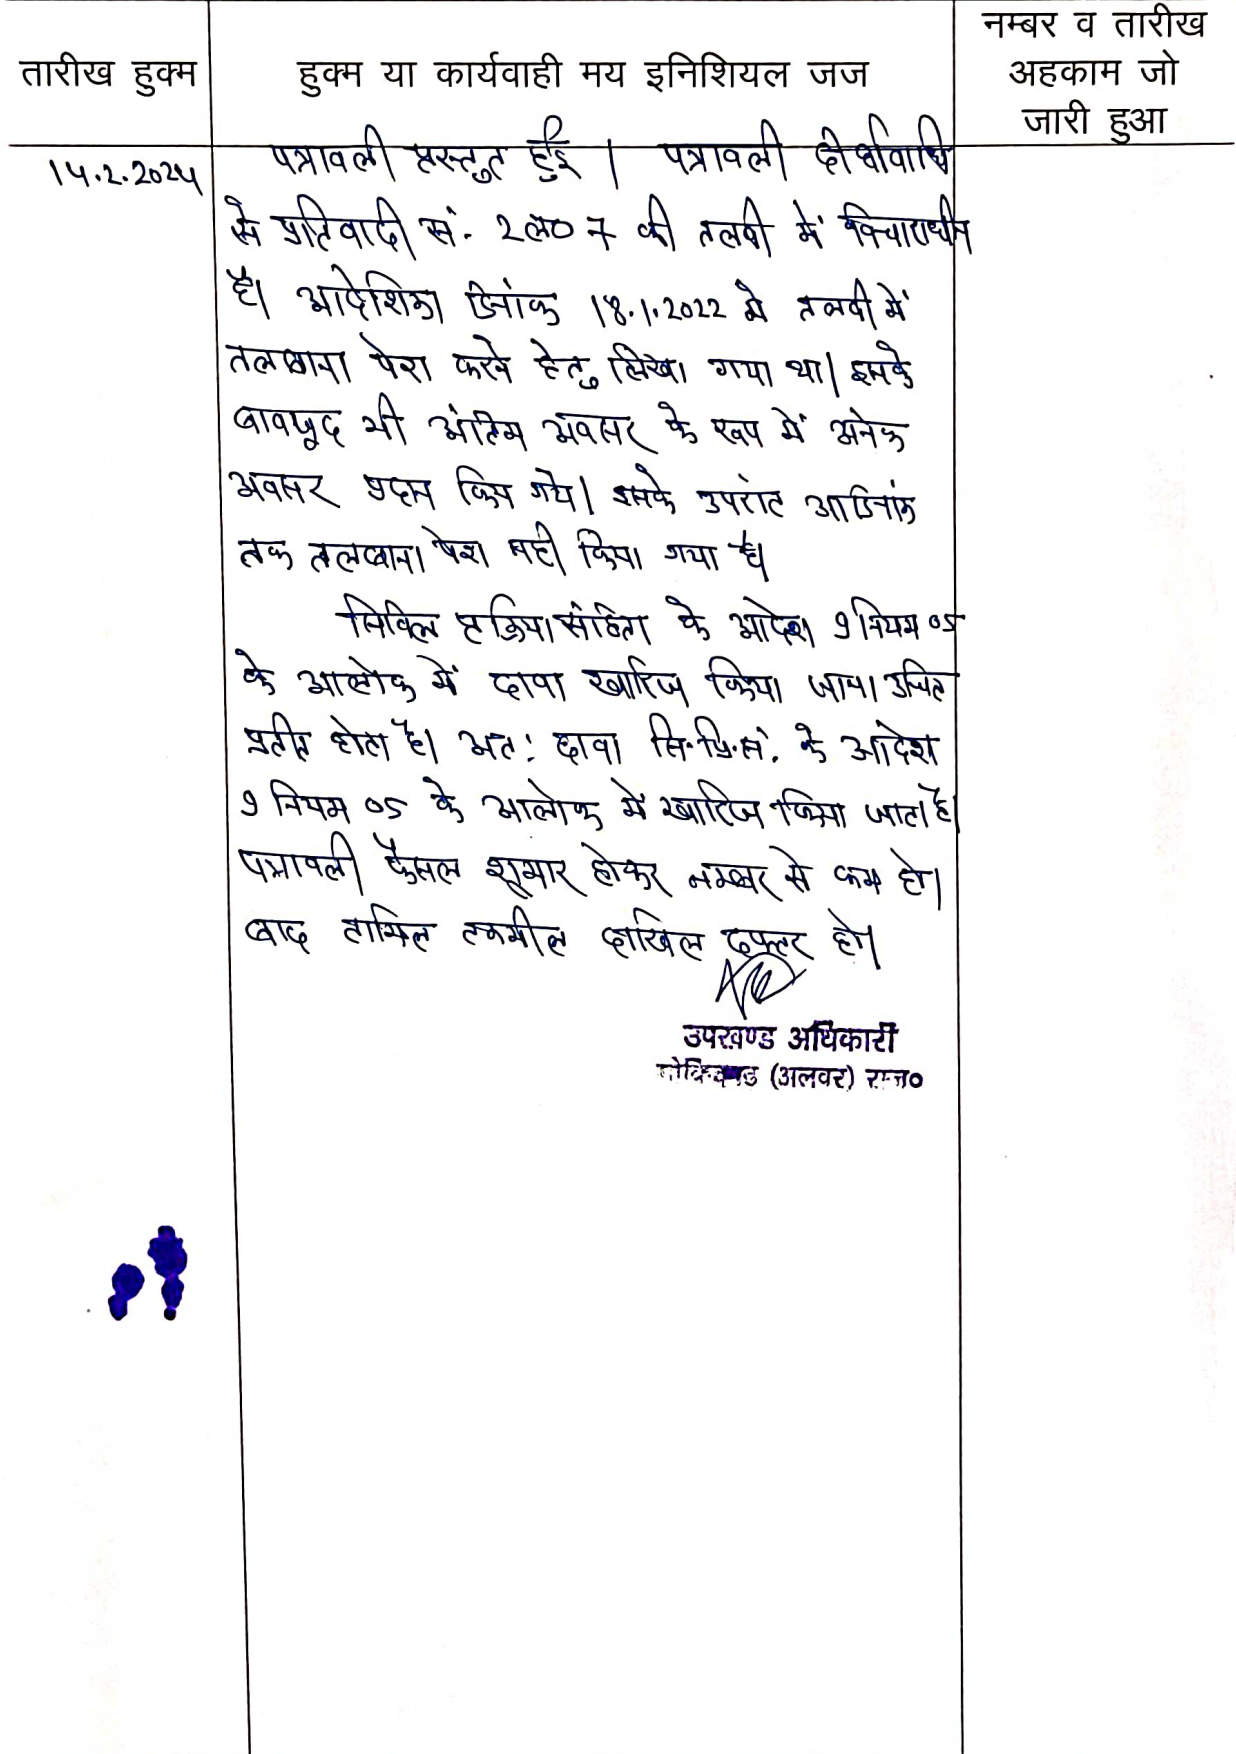 तारीख हुक्म
हुक्म या कार्यवाही मय इनिशियल जज
नम्बर व तारीख
अहकाम जो
जारी हुआ
पत्रावली प्रस्तुत हुई। पत्रावली दीर्घावधि
से प्रतिवादी सं. 2 ल0 7 की तलबी में विचाराधीन
है। आदेशिका दिनांक 18.1.2022 मे तलबी में
तलबाना पेश करने हेतु लिखा गया था। इसके
बावजूद भी अंतिम अवसर के रूप में अनेक
अवसर प्रदान किये गये। इसके उपरांत आदिनांक
तक तलबाना पेश नही किया गया है।
सिविल प्रक्रिया संहिता के आदेश 9 नियम 05
के आलोक में दावा खारिज किया जाना उचित
प्रतीत होता है। अत: दावा सि.प्रि.सं. के आदेश
9 नियम 05 के आलोक में खारिज किया जाता है।
पत्रावली फैसल शूमार होकर नम्बर से कम हो।
बाद तामिल तकमील दाखिल दफ्तर हो।
उपखण्ड अधिकारी
(अलवर) राज०